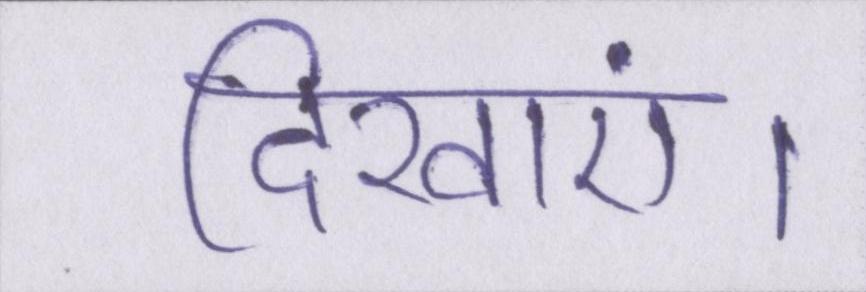 दिखाएं।